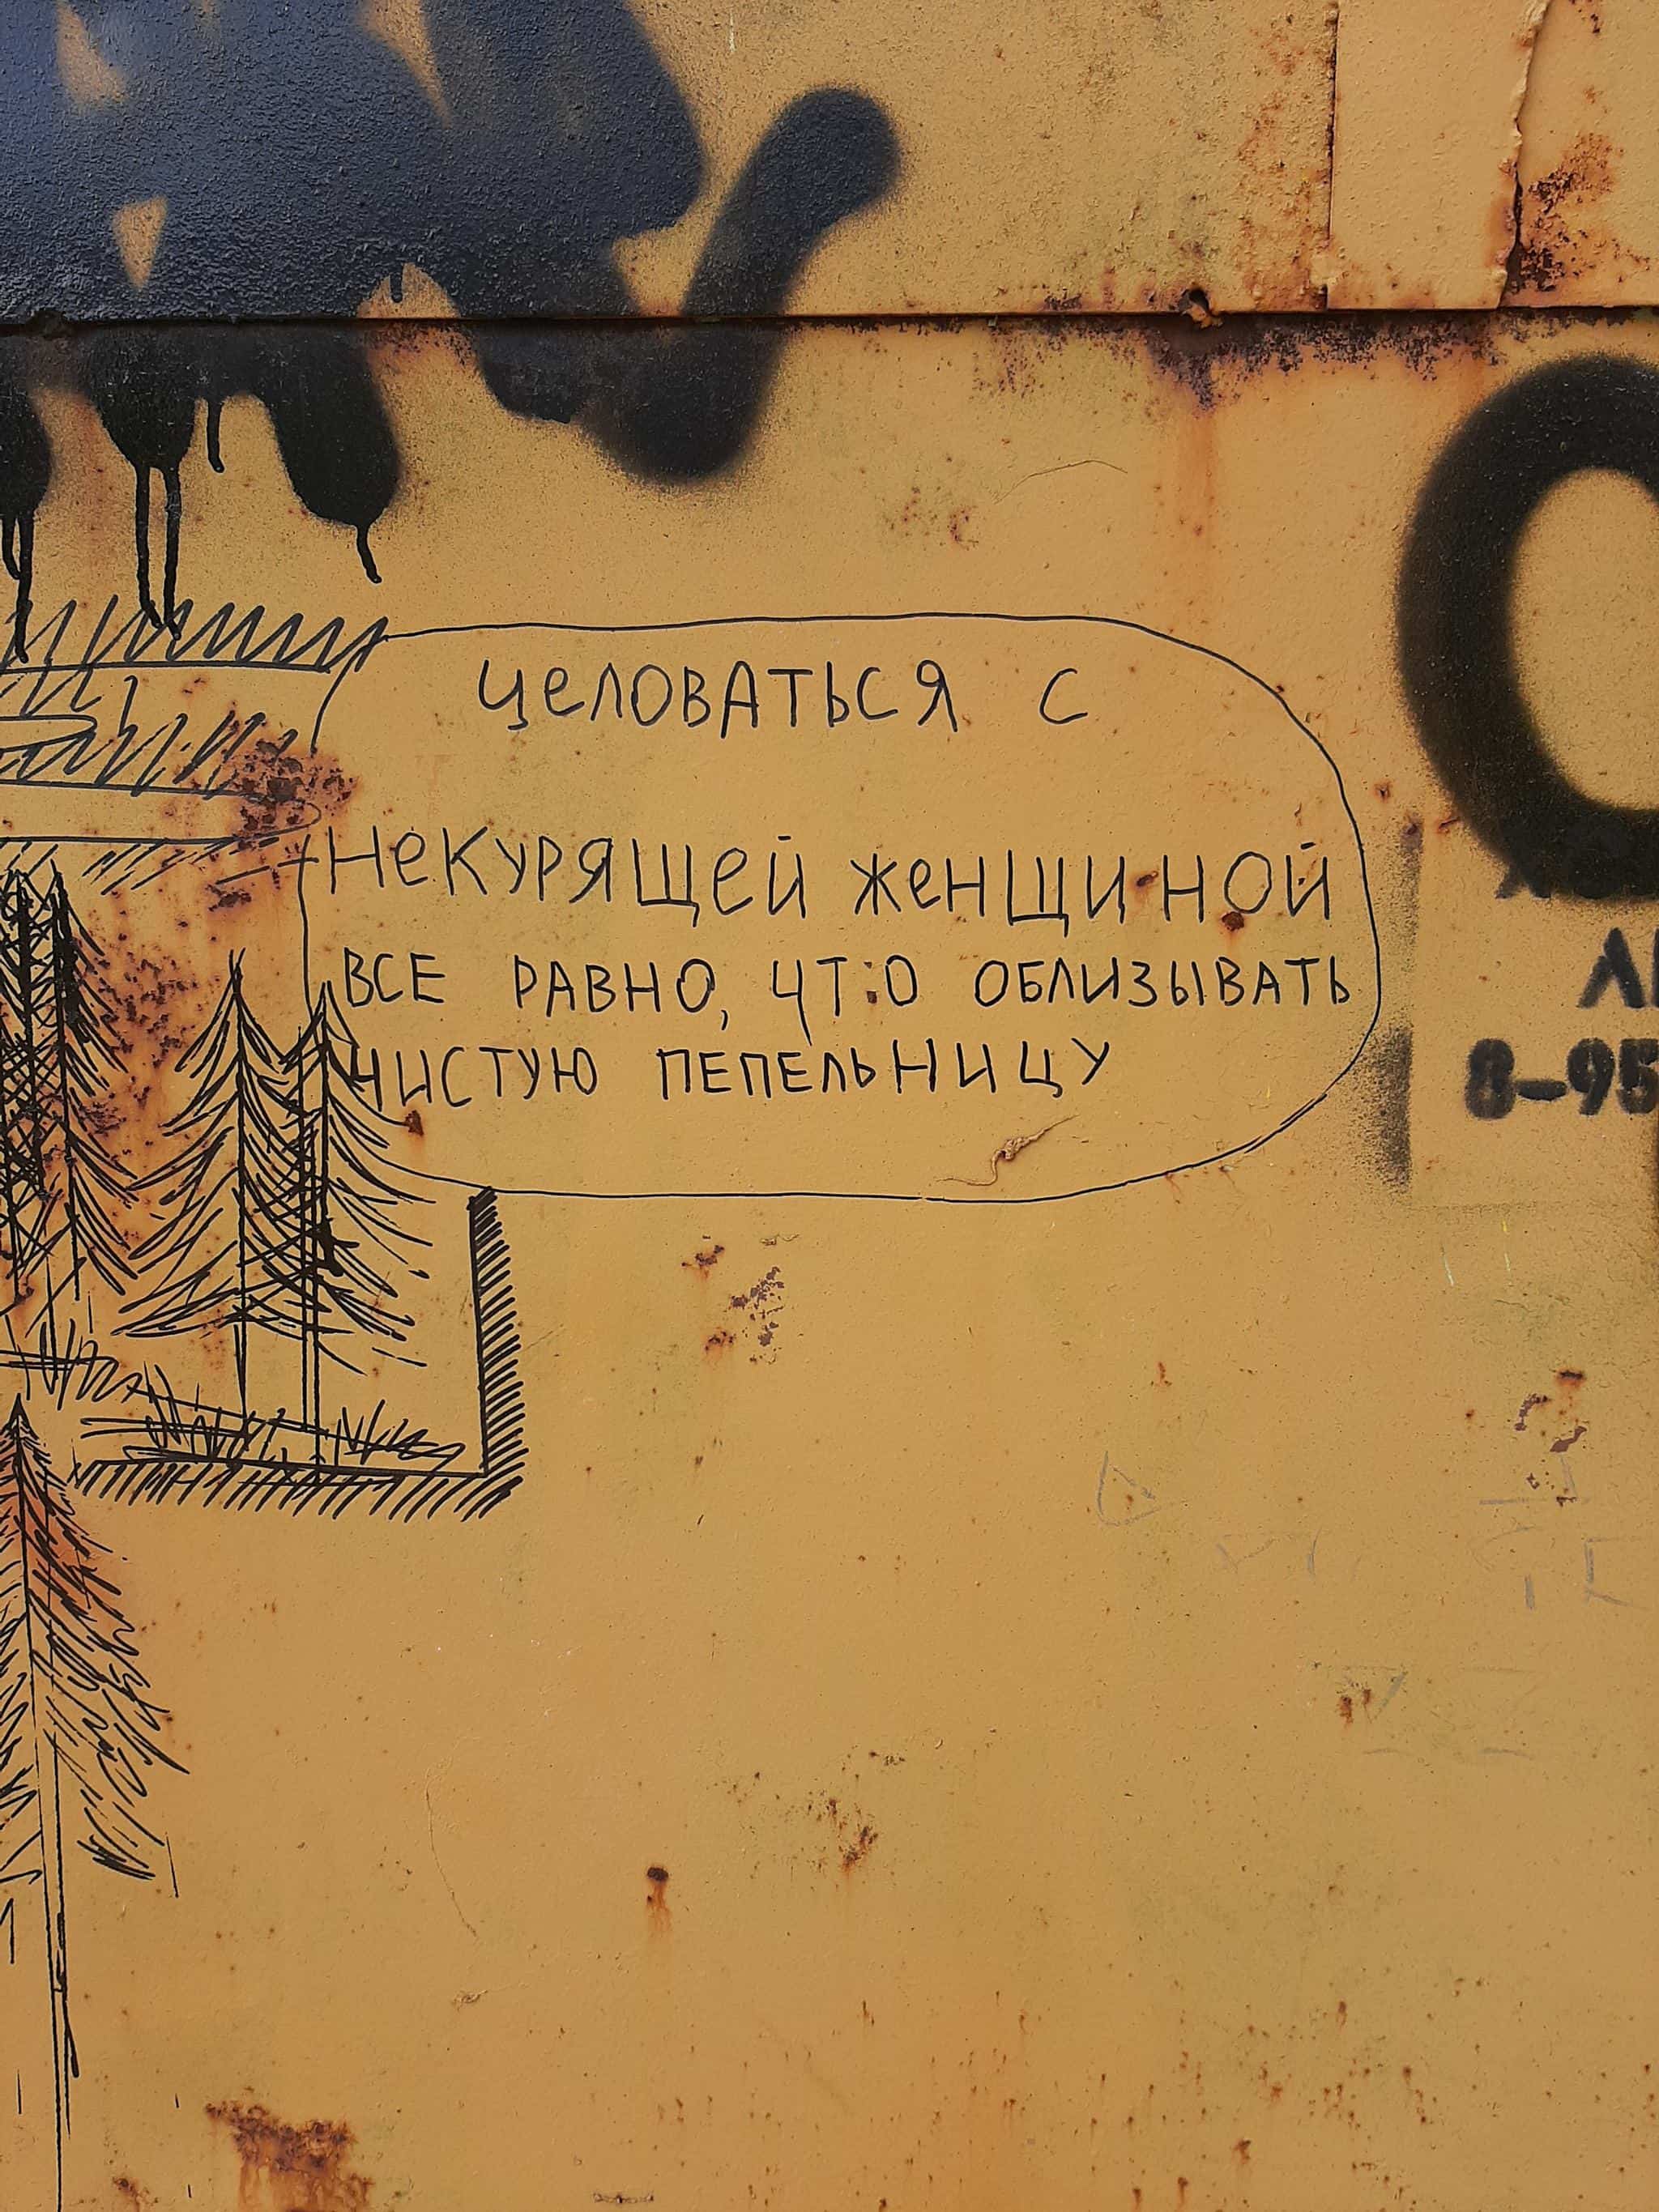 целоваться с
некурящей женщиной
ВСЕ РАВНО, ЧТО ОБЛИЗЫВАТЬ
ЧИСТУЮ ПЕПЕЛЬНИЦУ
8-95